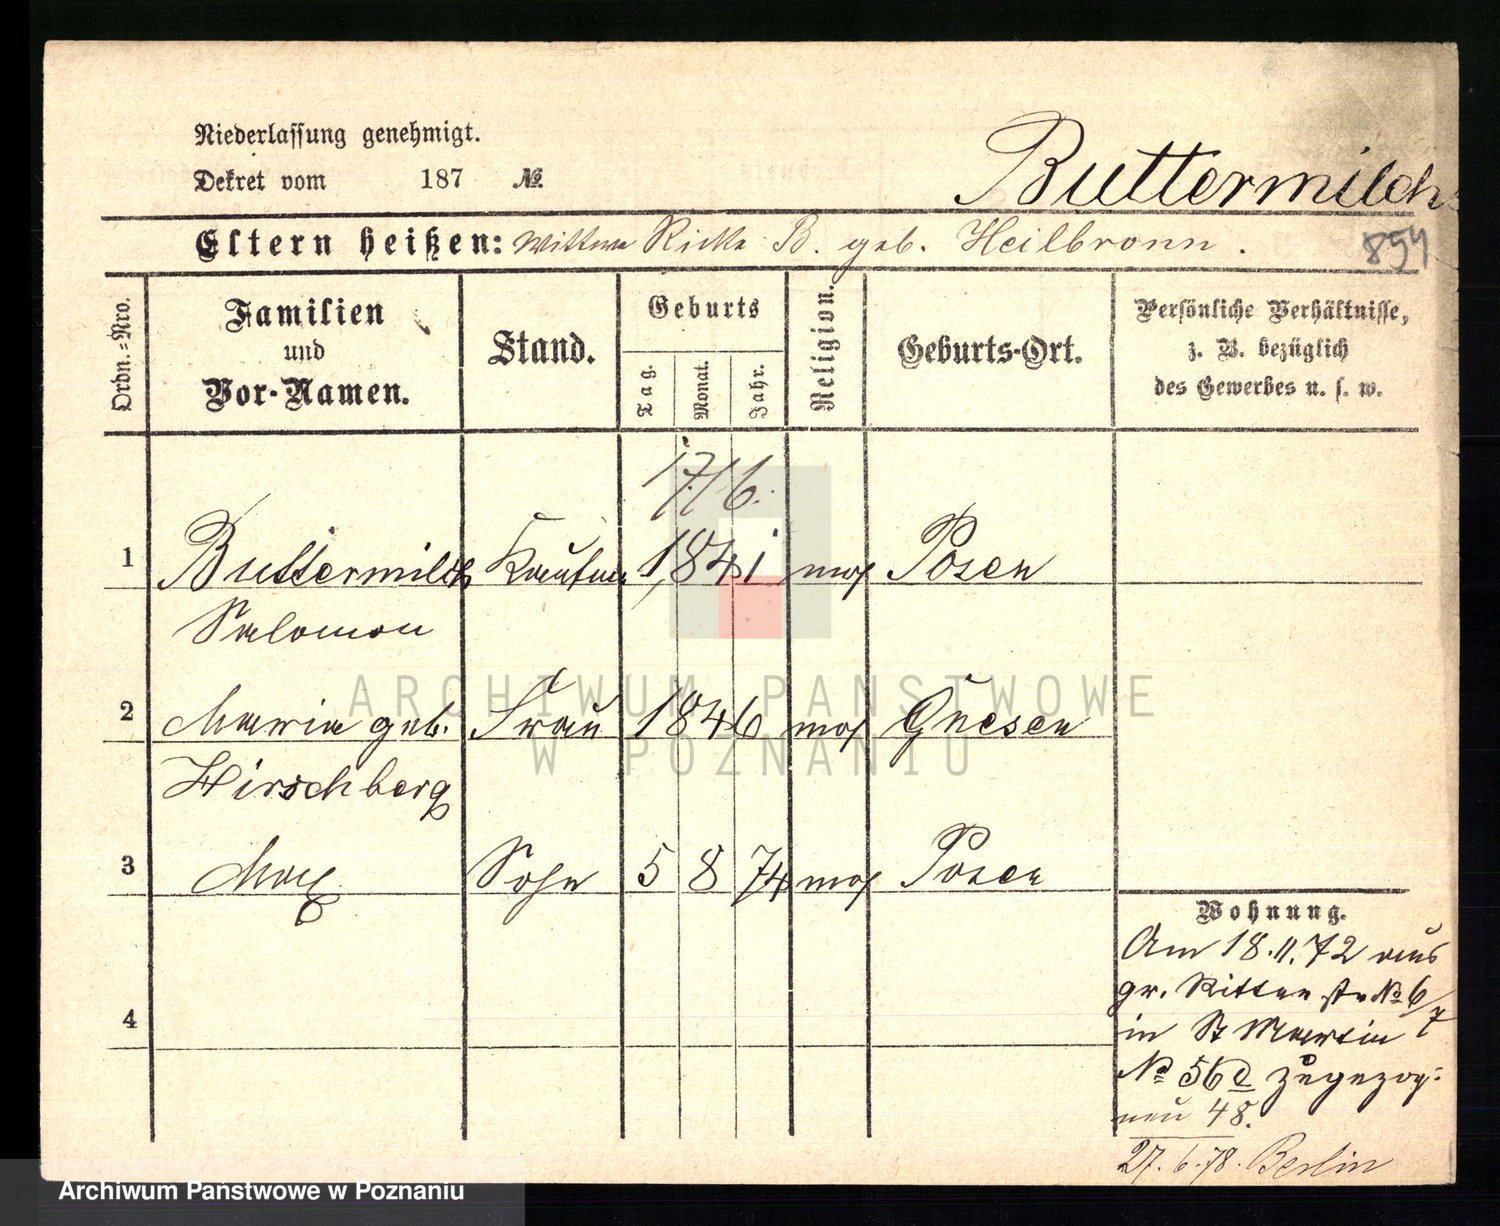 Niederlassung genehmigt.
Dekret vom 187 №
Buttermilch
Eltern heißen: Wittwe Ricke B. geb. Heilbronn.
854
Ordn.-Nro.
Familien und Vor-Namen.
Stand.
Geburts
Tag. Monat. Jahr.
Religion.
Geburts-Ort.
Persönliche Verhältnisse,
z. B. bezüglich
des Gewerbes u. s. w.
17/6.
1 Buttermilch Kaufm 1841 mos Posen
Salomon
2 Maria geb. Frau 1846 mos Gnesen
Hirschberg
3 Max Sohn 5 8 74 mos Posen
4
Wohnung.
Am 18.11.72 aus
gr. Ritter str № 6/7
in St Martin
№ 56 d zugezog:
neu 48.
27.6.78. Berlin
ARCHIWUM PAŃSTWOWE
W POZNANIU
Archiwum Państwowe w Poznaniu